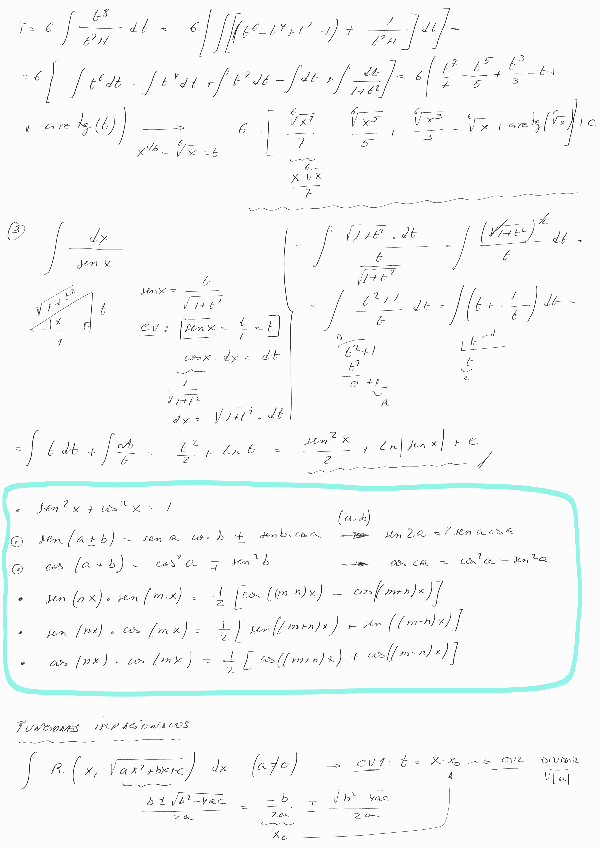 I = 6 ∫ t⁸/(t²+1) · dt = 6 ∫ [(t⁶ - t⁴ + t² - 1) + 1/(t²+1)] dt =
= 6 [ ∫ t⁶ dt - ∫ t⁴ dt + ∫ t² dt - ∫ dt + ∫ dt/(1+t²) ] = 6 ( t⁷/7 - t⁵/5 + t³/3 - t +
+ arc tg (t) ) → x^(1/6) = ⁶√x = t   6 · [ ⁶√x⁷/7   ⁶√x⁵/5 + ⁶√x³/3 - ⁶√x + arctg(⁶√x) ] + c
x ⁶√x / 7
③ ∫ dx / sen x
√(1+t²)   t   x   1
sen x = t/√(1+t²)
CV: sen x = t/1 = t
cos x · dx = dt
1/√(1+t²)
dx = √(1+t²) · dt
= ∫ √(1+t²) · dt / (t/√(1+t²)) = ∫ (√(1+t²))² / t · dt =
= ∫ (t²+1)/t · dt = ∫ (t + 1/t) dt =
= ∫ t dt + ∫ dt/t = t²/2 + ln t = sen²x/2 + ln |sen x| + c
• sen²x + cos²x = 1
• sen (a ± b) = sen a · cos b ± sen b · cos a   (a=b) → sen 2a = 2 sen a cos a
• cos (a ± b) = cos²a ∓ sen²b → cos 2a = cos²a - sen²a
• sen (nx) · sen (mx) = 1/2 [cos ((m-n)x) - cos((m+n)x)]
• sen (nx) · cos (mx) = 1/2 [sen((m+n)x) + sen ((m-n)x)]
• cos (nx) · cos (mx) = 1/2 [cos((m+n)x) + cos((m-n)x)]
FUNCIONES IRRACIONALES
∫ R (x, √(ax²+bx+c)) dx (a≠0) → CV1: t = x - x₀ → CV2 DIVIDIR √|a|
b ± √(b²-4ac) / 2a = -b/2a ∓ √(b²-4ac)/2a
x₀